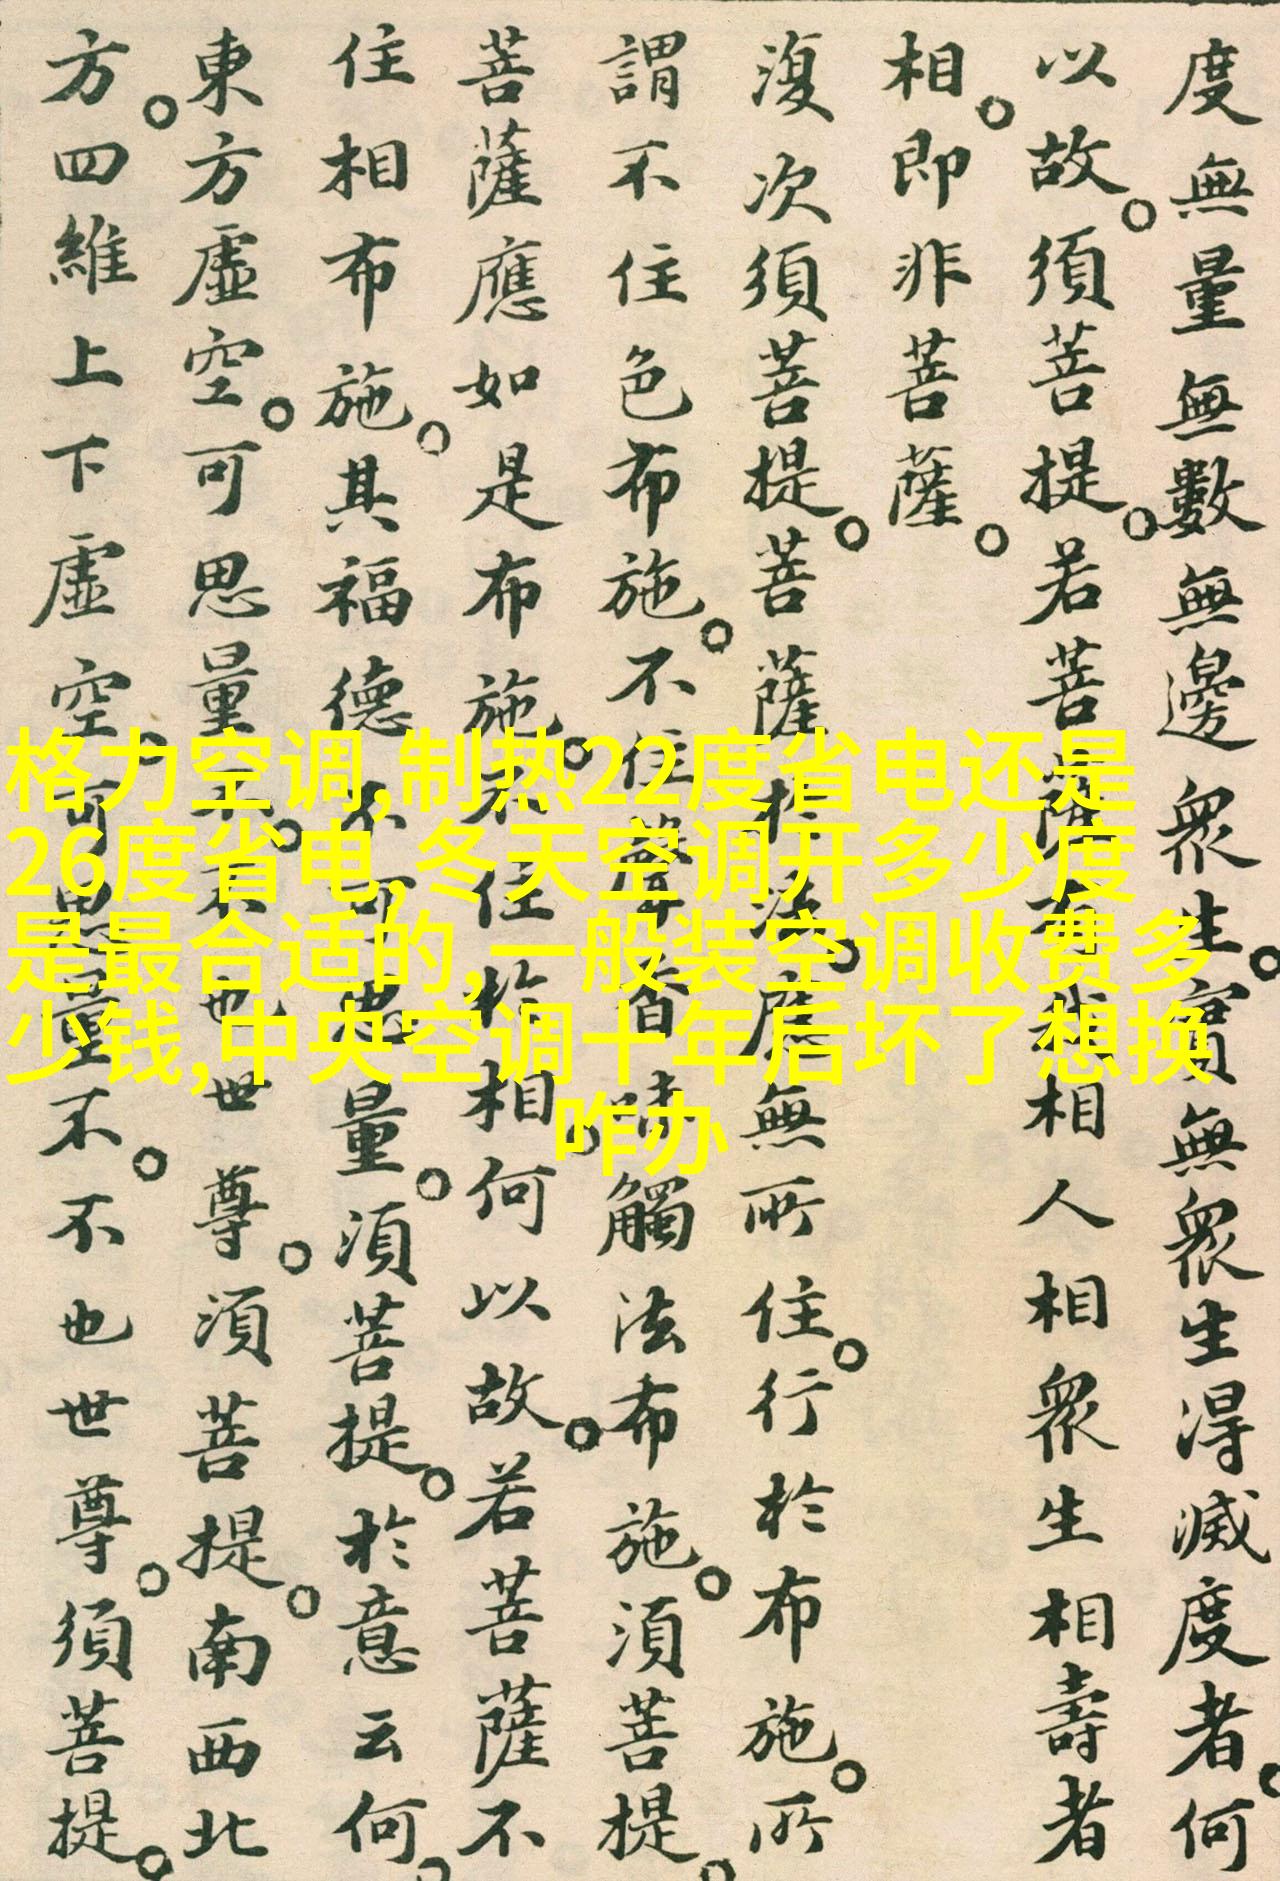 度無量無數無邊眾生。實無眾生得滅度者。何
以故。須菩提。若菩薩有我相人相眾生相壽者
相。即非菩薩。
復次須菩提。菩薩於法。應無所住。行於布施。所
謂不住色布施。不住聲香味觸法布施。須菩提。
菩薩應如是布施。不住於相。何以故。若菩薩不
住相布施。其福德不可思量。須菩提。於意云何。
東方虛空。可思量不。不也世尊。須菩提。南西北
方。四維上下虛空。可思量不。不也世尊。須菩提。
格力空调,制热22度省电还是
26度省电,冬天空调开多少度
是最合适的,一般装空调收费多
少钱,中央空调十年后坏了想换
咋办